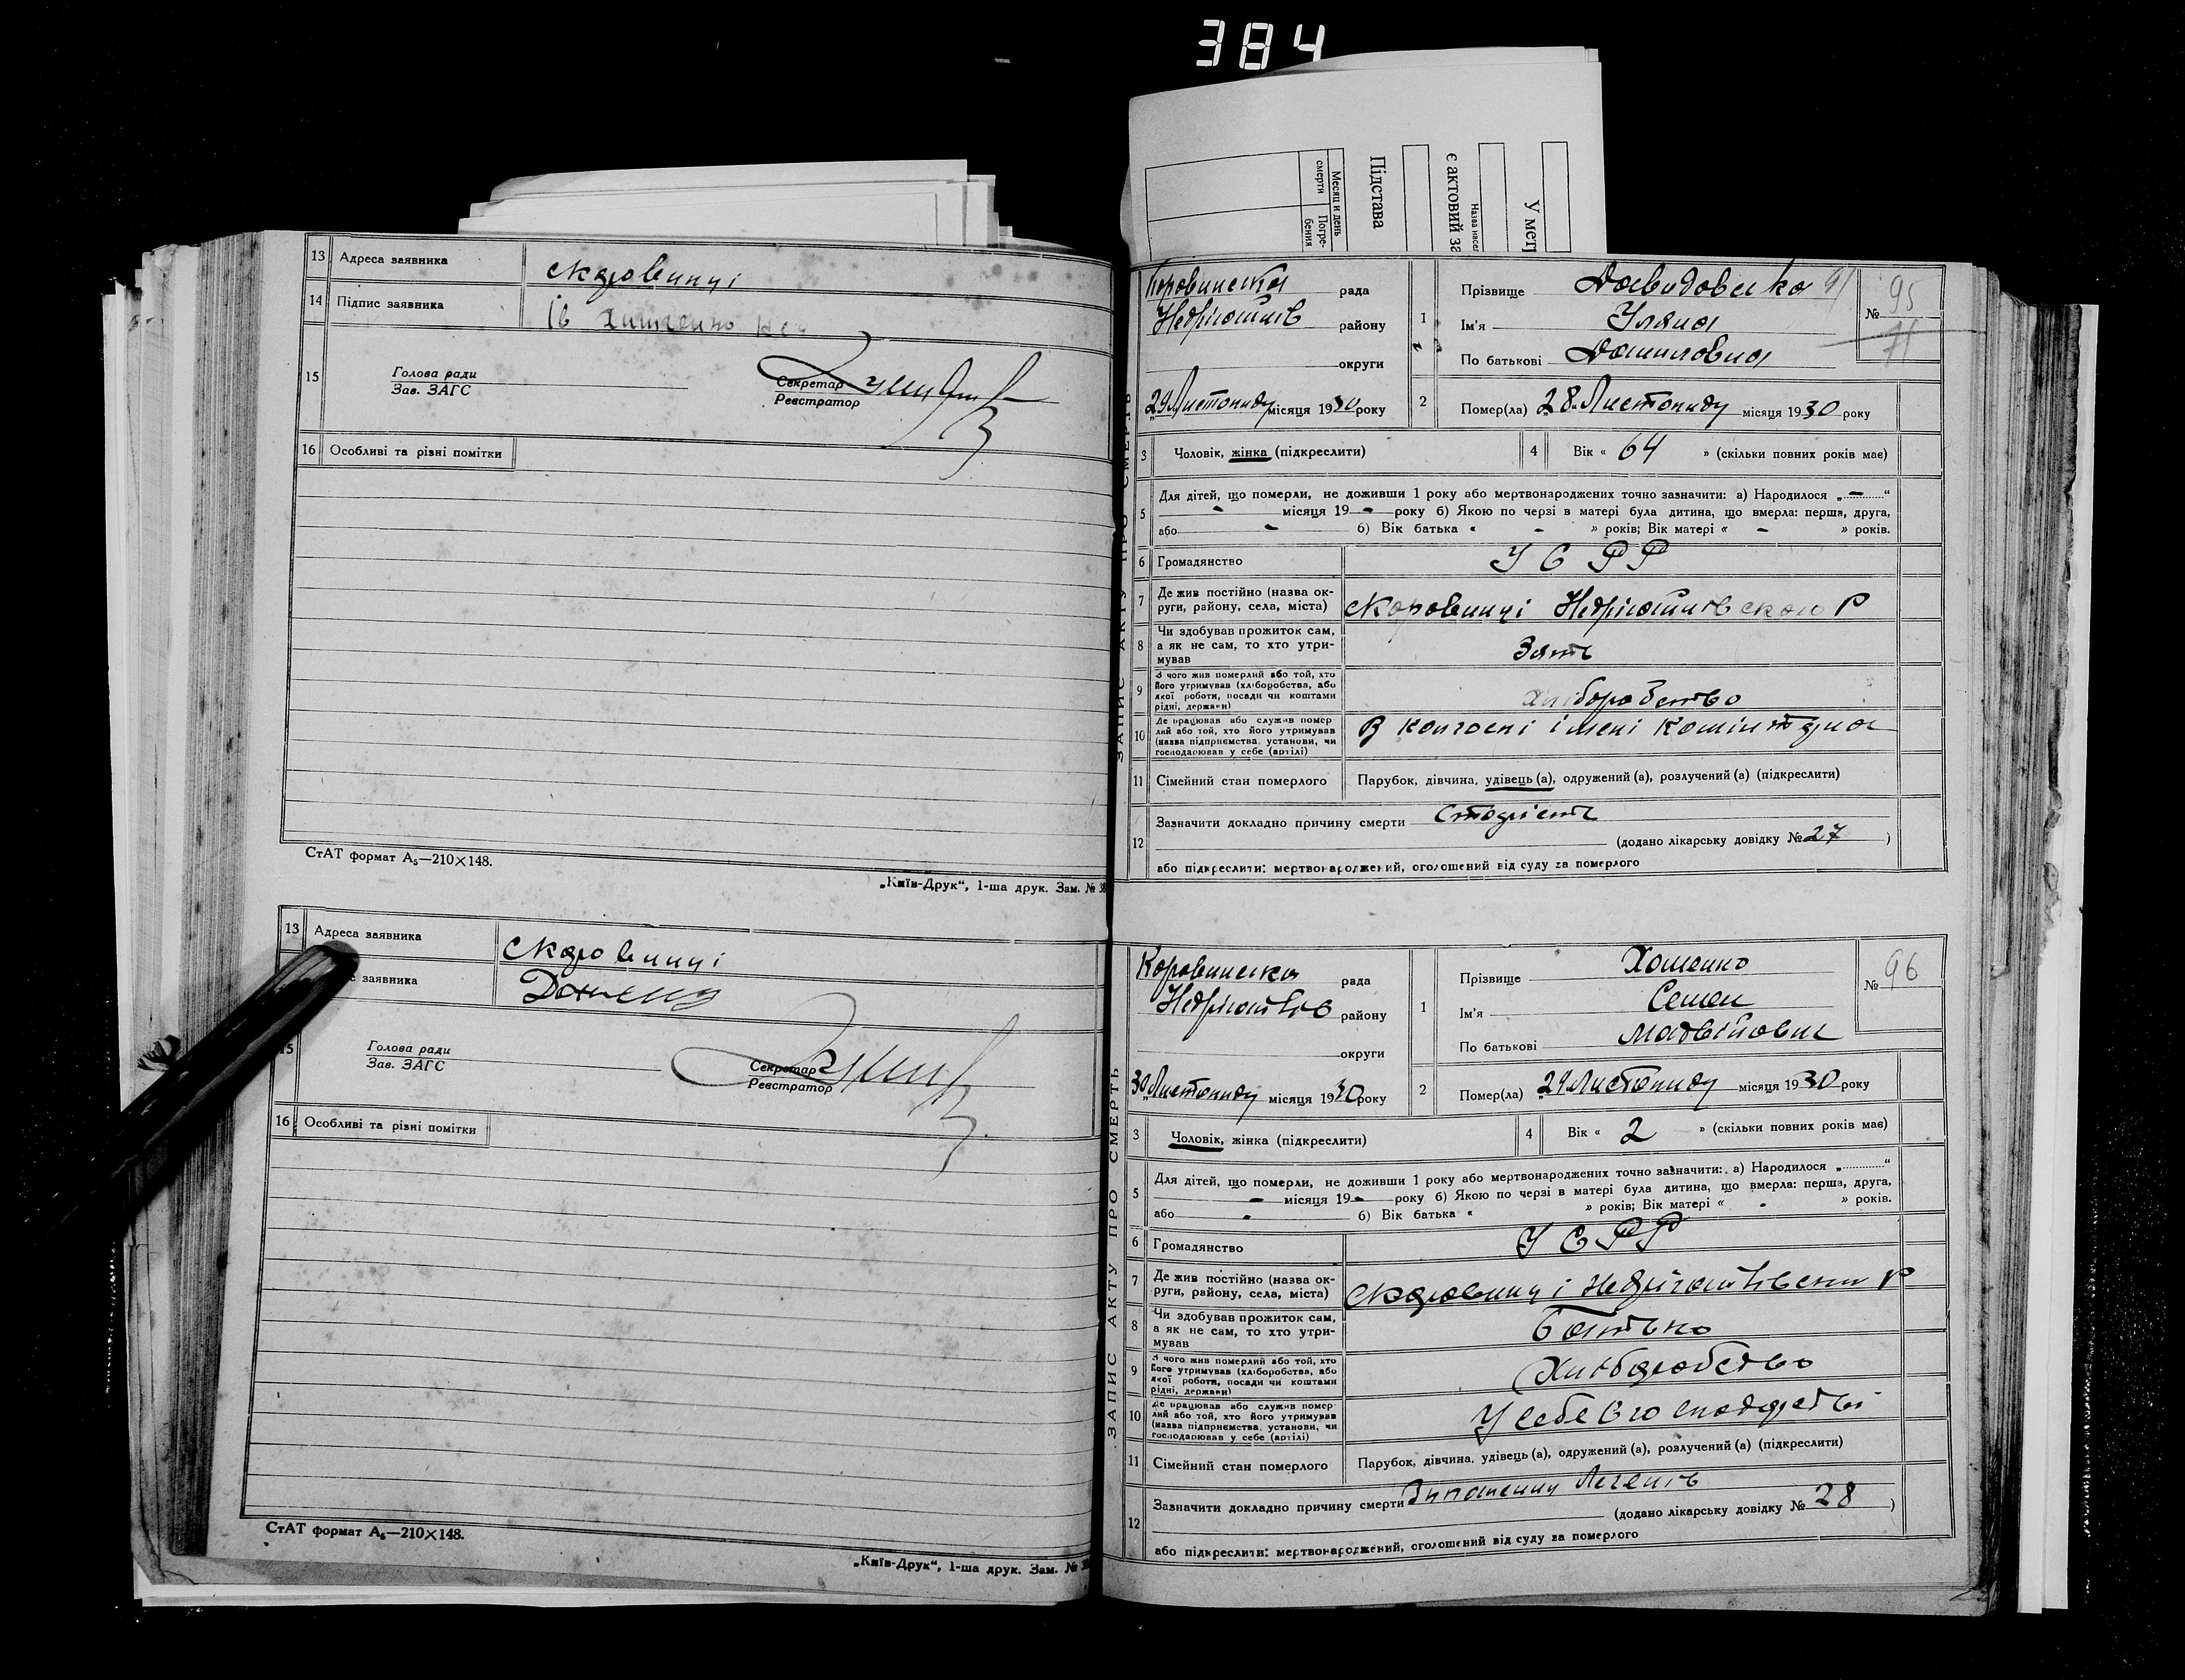 384
Месяц и день
смерти
Погре-
бения
Підстава
є актовий за
Назва насел
У метр
13 Адреса заявника с Коровинці
14 Підпис заявника
15 Голова ради
Зав. ЗАГС
Секретар
Реєстратор
16 Особливі та різні помітки
СтАТ формат А₅—210×148.
„Київ-Друк“, 1-ша друк. Зам. №
13 Адреса заявника с Коровинці
заявника
15 Голова ради
Зав. ЗАГС
Секретар
Реєстратор
16 Особливі та різні помітки
СтАТ формат А₅—210×148.
„Київ-Друк“, 1-ша друк. Зам. №
ЗАПИС АКТУ ПРО СМЕРТЬ
Коровинська рада
Недригайлів району
округи
29 Листопаду місяця 1930 року
1 Прізвище Давидовська 91
Ім'я Уляна
По батькові Даниловна
№ 95
71
2 Помер(ла) 28 Листопаду місяця 1930 року
3 Чоловік, жінка (підкреслити)
4 Вік « 64 » (скільки повних років має)
5 Для дітей, що померли, не доживши 1 року або мертвонароджених точно зазначити: а) Народилося „ — “
- місяця 19 - року б) Якою по черзі в матері була дитина, що вмерла: перша, друга,
або - б) Вік батька « - » років; Вік матері « - » років.
6 Громадянство УСРР
7 Де жив постійно (назва ок-
руги, району, села, міста) с Коровинці Недригайлівского Р
8 Чи здобував прожиток сам,
а як не сам, то хто утри-
мував Зять
9 З чого жив померлий або той, хто
його утримував (хліборобства, або
якої роботи, посади чи коштами
рідні, держави) Хліборобство
10 Де працював або служив помер
лий або той, хто його утримував
(назва підприємства, установи, чи
господарював у себе (артілі) В колгоспі імені Комінтерна
11 Сімейний стан померлого Парубок, дівчина, удівець (а), одружений (а), розлучений (а) (підкреслити)
12 Зазначити докладно причину смерти Старість
(додано лікарську довідку № 27 )
або підкреслити: мертвонароджений, оголошений від суду за померлого
ЗАПИС АКТУ ПРО СМЕРТЬ
Коровинська рада
Недригайлів району
округи
30 Листопаду місяця 1930 року
1 Прізвище Хоменко
Ім'я Семен
По батькові Матвійович
№ 96
2 Помер(ла) 29 Листопаду місяця 1930 року
3 Чоловік, жінка (підкреслити)
4 Вік « 2 » (скільки повних років має)
5 Для дітей, що померли, не доживши 1 року або мертвонароджених точно зазначити: а) Народилося „ “
- місяця 19 - року б) Якою по черзі в матері була дитина, що вмерла: перша, друга,
або - б) Вік батька « » років; Вік матері « - » років.
6 Громадянство УСРР
7 Де жив постійно (назва ок-
руги, району, села, міста) с Коровинці Недригайлівськи Р
8 Чи здобував прожиток сам,
а як не сам, то хто утри-
мував Батько
9 З чого жив померлий або той, хто
його утримував (хліборобства, або
якої роботи, посади чи коштами
рідні, держави) Хліборобство
10 Де працював або служив помер
лий або той, хто його утримував
(назва підприємства, установи, чи
господарював у себе (артілі) У себе в господарстві
11 Сімейний стан померлого Парубок, дівчина, удівець (а), одружений (а), розлучений (а) (підкреслити)
12 Зазначити докладно причину смерти Запалення Легень
(додано лікарську довідку № 28 )
або підкреслити: мертвонароджений, оголошений від суду за померлого